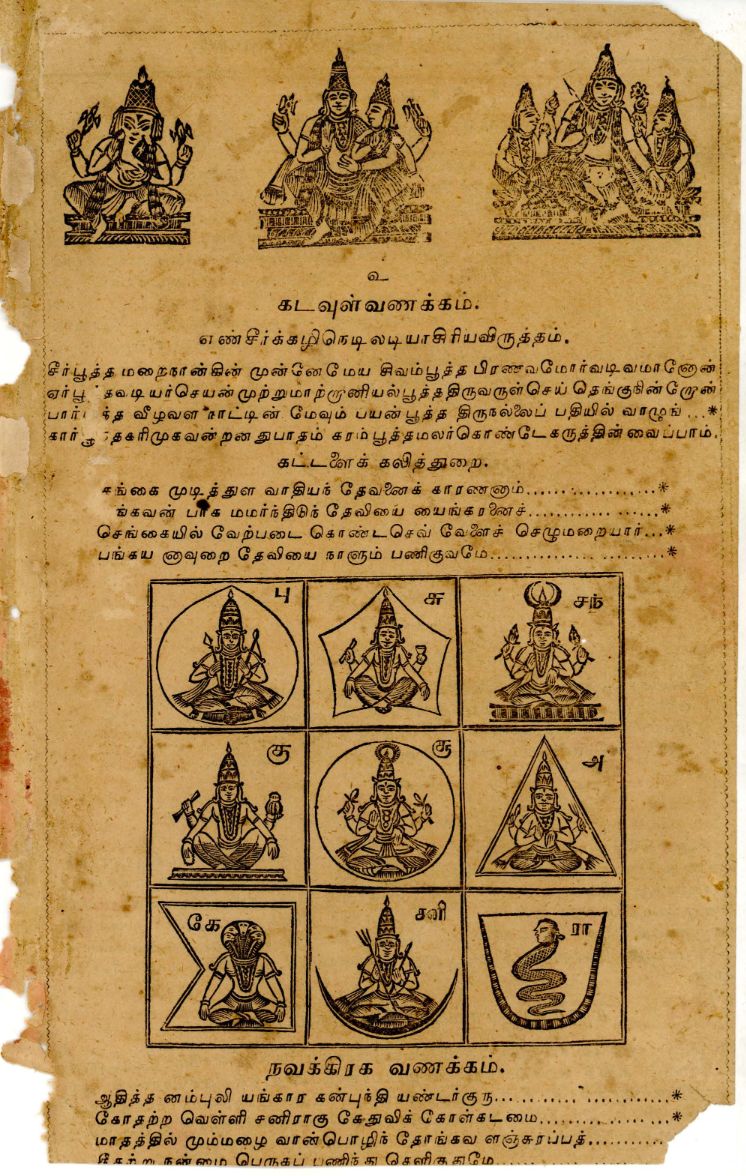 உ
கடவுள்வணக்கம்.
எண்சீர்க்கழிநெடிலடியாசிரியவிருத்தம்.
சீர்பூத்த மறைநான்கின் முன்னேமேய சிவம்பூத்த பிரணவமோர்வடிவமானோன்
செயன்முற்றுமாற்றூனியல்பூத்ததிருவருள்செய் தெங்குநின்றோன்
வீழவள நாட்டின் மேவும் பயன்பூத்த திருநல்லைப் பதியில் வாழுங் ...*
கரம்பூத்தமலர்கொண்டேகருத்தின்வைப்பாம்.
கட்டளைக் கலித்துறை.
முடித்துள வாதியந் தேவனைக் காரணனும்..................*
மமர்ந்திடுந் தேவியை யைங்கரனைச்..................*
செங்கையில் வேற்படை கொண்டசெவ் வேளைச் செழுமறையார்...*
பங்கய னாவுறை தேவியை நாளும் பணிகுவமே..................*
பு சு சந்
கு சூ அ
கே சனி ரா
நவக்கிரக வணக்கம்.
ஆதித்த னம்புலி யங்கார கன்புந்தி யண்டர்குரு..................*
கோதற்ற வெள்ளி சனிராகு கேதுவிக் கோள்கடமை..................*
மாதத்தில் மும்மழை வான்பொழிந் தோங்கவ ளஞ்சுரப்பத்...........
நன்மை பெருகப் பணிந்து